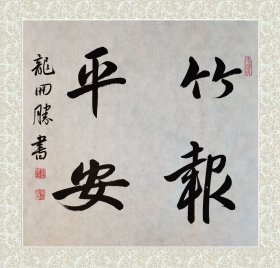 竹報
平安
龍開勝書